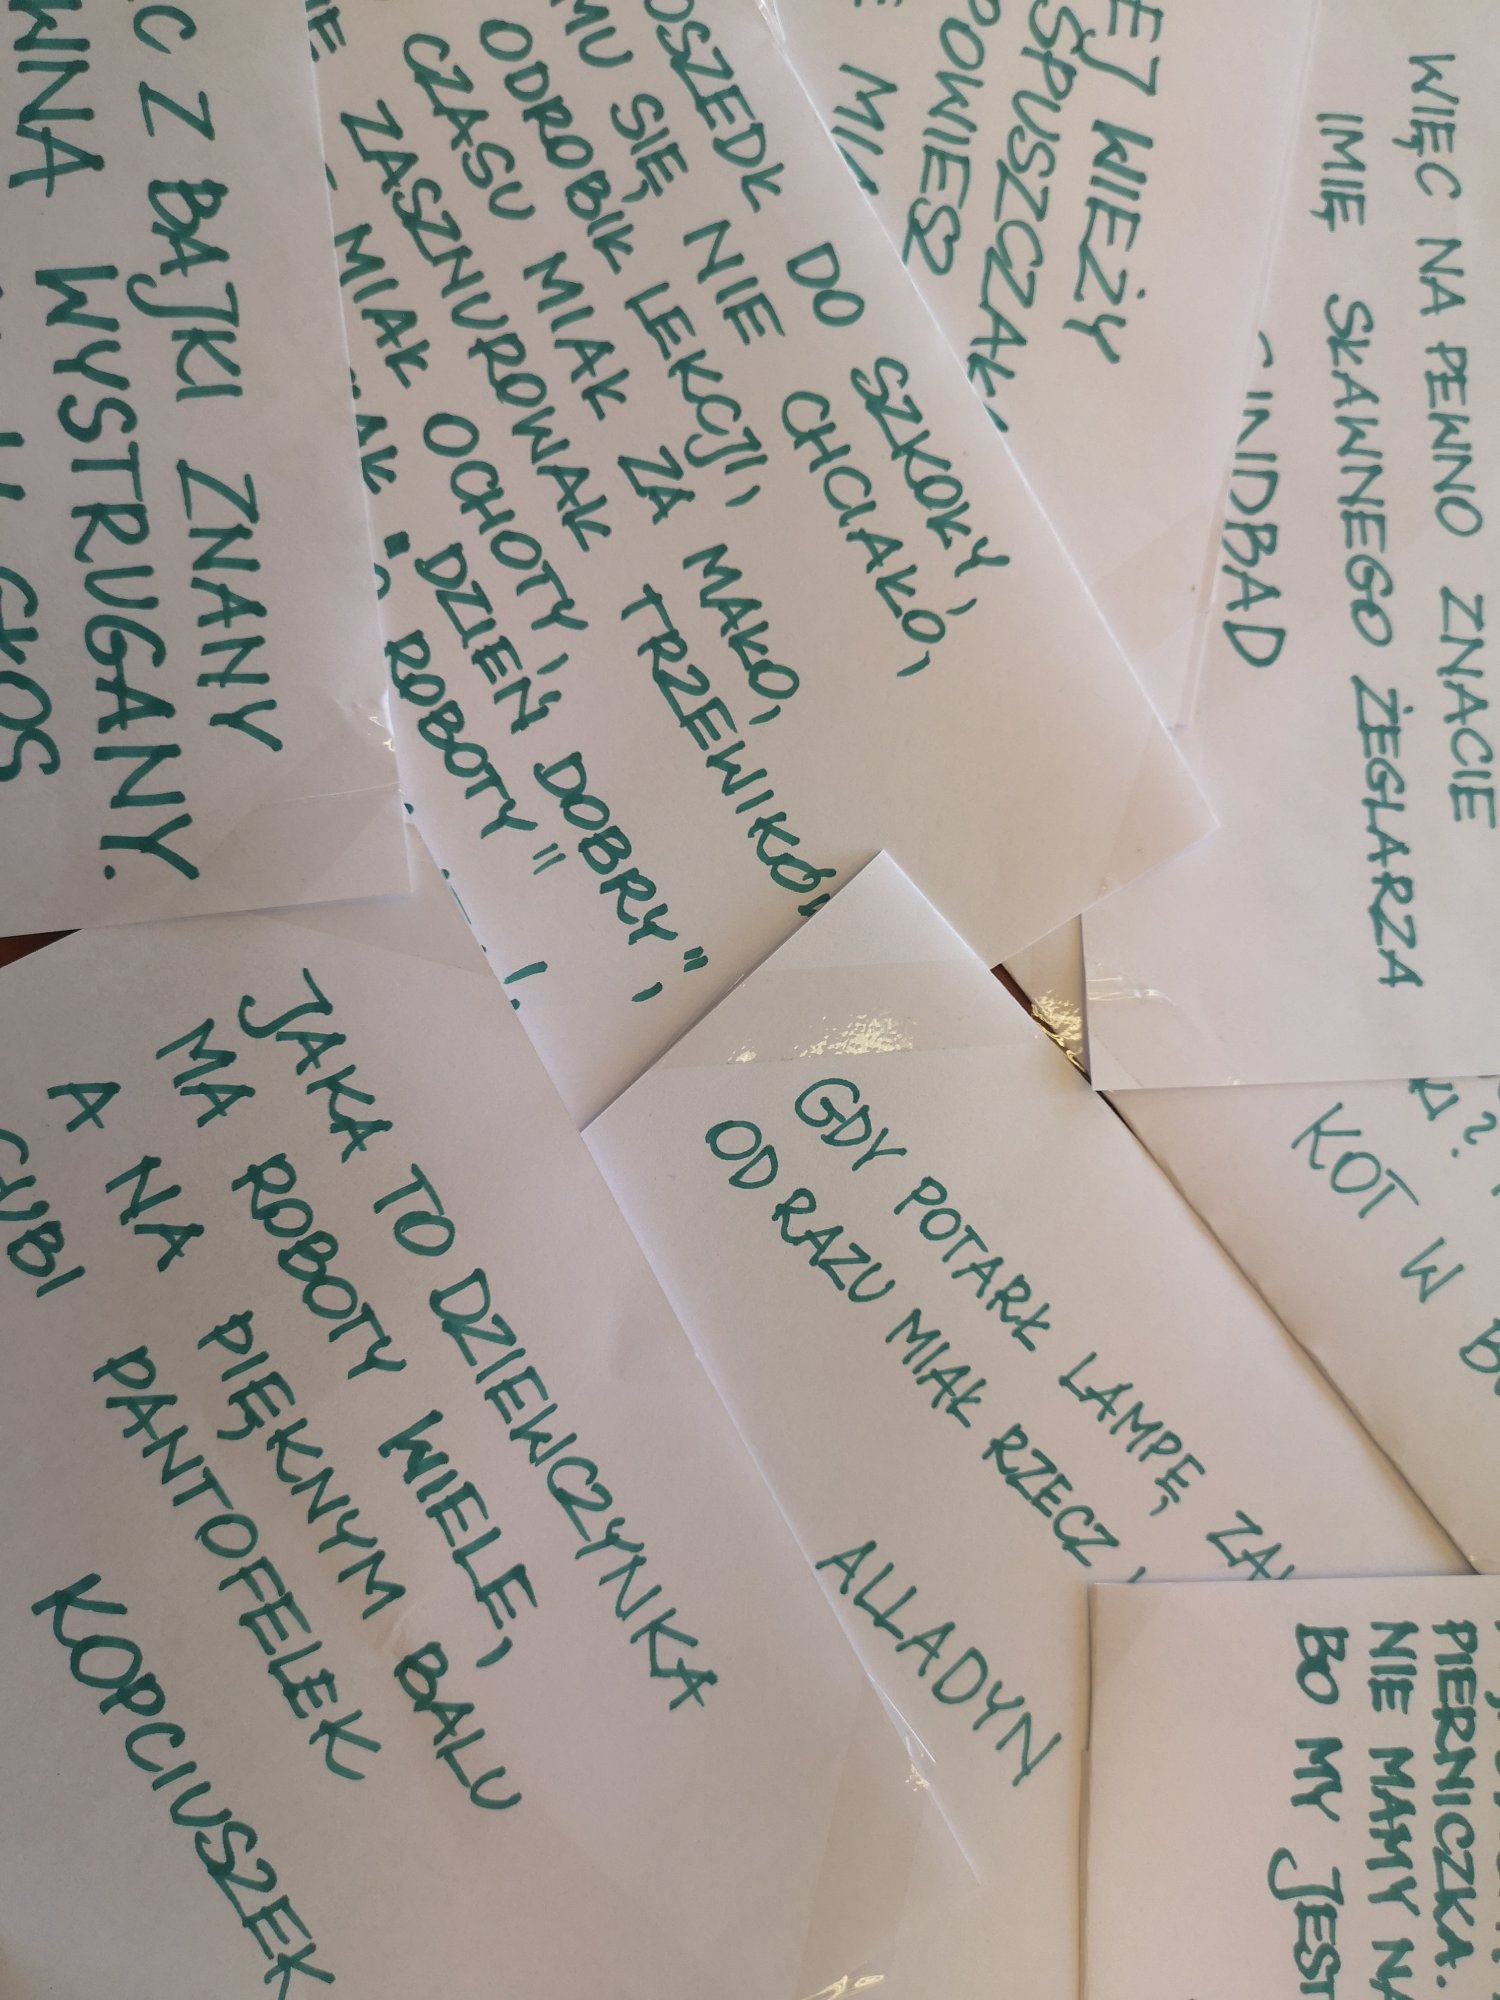 Z BAJKI ZNANY
WYSTRUGANY.
DO SZKOŁY,
SIĘ NIE CHCIAŁO,
ODROBIŁ LEKCJI,
CZASU MIAŁ ZA MAŁO,
ZASZNUROWAŁ TRZEWIKÓW
MIAŁ OCHOTY,
"DZIEŃ DOBRY",
ROBOTY"
WIEŻY
SPUSZCZAŁ
POWIESZ
WIĘC NA PEWNO ZNACIE
IMIĘ SŁAWNEGO ŻEGLARZA
SINDBAD
JAKA TO DZIEWCZYNKA
MA ROBOTY WIELE,
A NA PIĘKNYM BALU
GUBI PANTOFELEK
KOPCIUSZEK
GDY POTARŁ LAMPĘ
OD RAZU MIAŁ RZECZ
ALLADYN
KOT W
PIERNICZKA.
NIE MAMY
BO MY